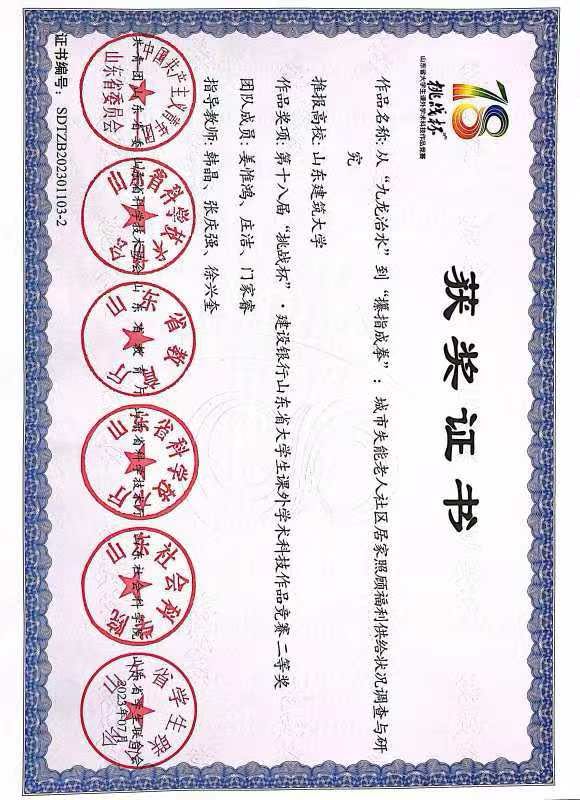 18
挑战杯
山东省大学生课外学术科技作品竞赛
获奖证书
作品名称:从“九龙治水”到“攥指成拳”:城市失能老人社区居家照顾福利供给状况调查与研
究
推报高校:山东建筑大学
作品奖项:第十八届“挑战杯”·建设银行山东省大学生课外学术科技作品竞赛 二等奖
团队成员:姜惟鸿、庄洁、门家睿
指导教师:韩晶、张庆强、徐兴奎
共青团山东省委 山东省科学技术协会 山东省教育厅 山东省科学技术厅 山东社会科学院 山东省学生联合会
2023年07月
中国共产主义青年团
山东省委员会
证书编号:SDTZB202301103-2